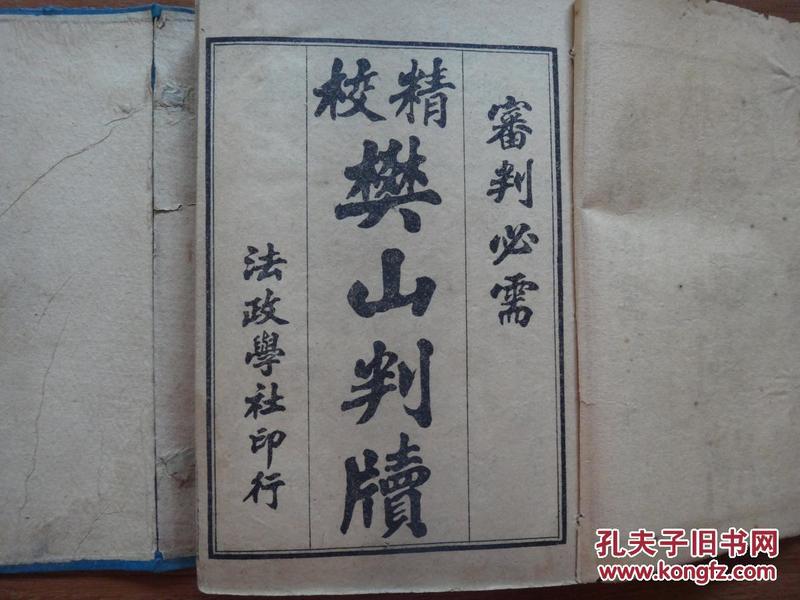 審判必需
精校
樊山判牘
法政學社印行
孔夫子旧书网
www.kongfz.com